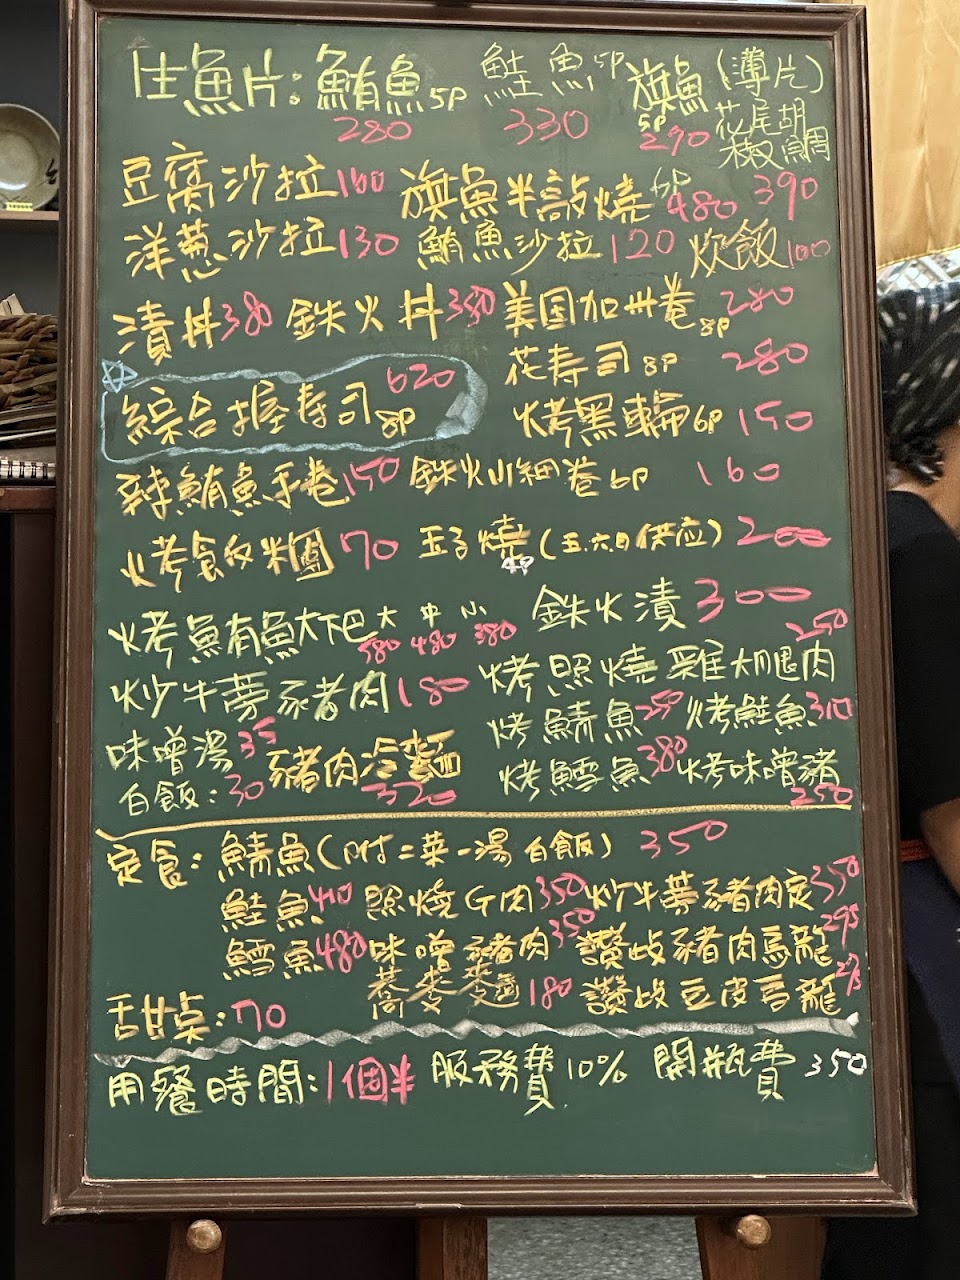 生魚片：鮪魚5P 280 鮭魚5P 330 旗魚5P 290 (薄片) 花尾胡椒鯛 390
豆腐沙拉160 旗魚半敲燒6P 480
洋蔥沙拉130 鮪魚沙拉120 炊飯100
漬丼380 鉄火丼350 美国加州卷8P 280
花寿司8P 280
綜合握寿司8P 620 烤黑輪6P 150
辣鮪魚手卷150 鉄火小細卷6P 160
烤飯糰70 玉子燒4P(五.六.日供应) 200
烤鮪魚大下巴 大580 中480 小380 鉄火漬300
炒牛蒡豬肉180 烤照燒雞大腿肉250
味噌湯35 烤鯖魚250 烤鮭魚310
白飯：30 豬肉冷麵320 烤鱈魚380 烤味噌豬250
定食：鯖魚(附二菜一湯白飯) 350
鮭魚410 照燒G肉350 炒牛蒡豬肉定350
鱈魚480 味噌豬肉350 讚歧豬肉烏龍295
蕎麥麵180 讚歧豆皮烏龍
甜桌：70
用餐時間：1個半 服務費10% 開瓶費350